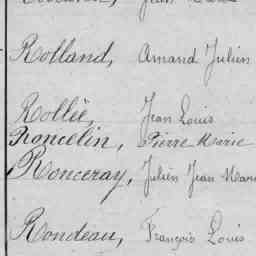 Rolland, Amand Julien
Rollié, Jean Louis
Roncelin, Pierre Marie
Ronceray, Julien Jean
Rondeau, François Louis